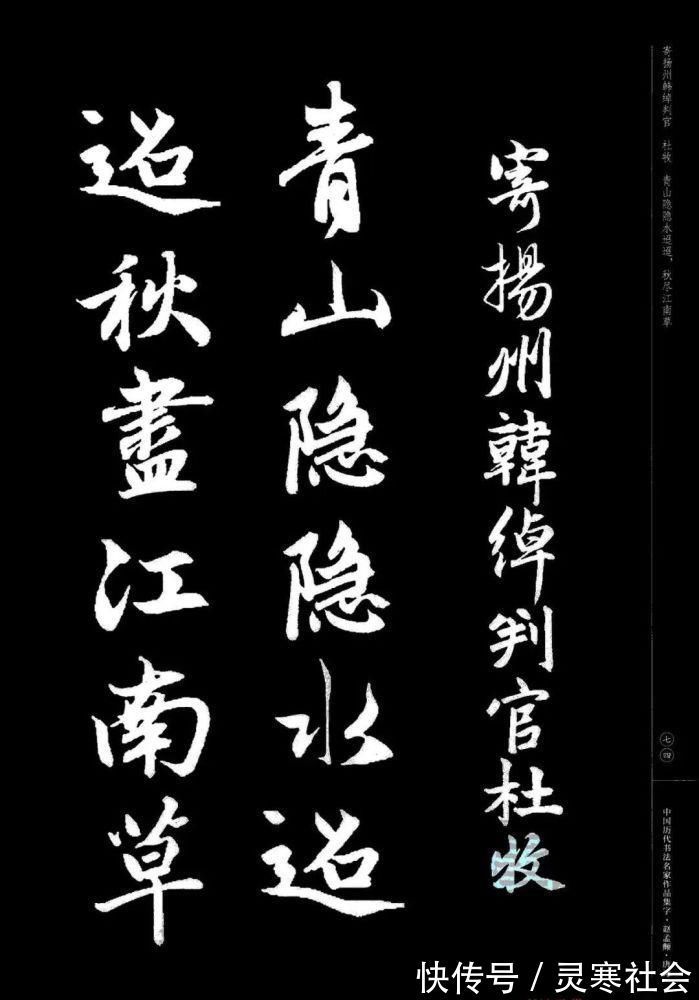 寄扬州韩绰判官 杜牧 青山隐隐水迢迢，秋尽江南草
七四
中国历代书法名家作品集字·赵孟頫·唐
寄揚州韓綽判官杜牧
青山隐隐水迢
迢秋盡江南草
快传号／灵寒社会